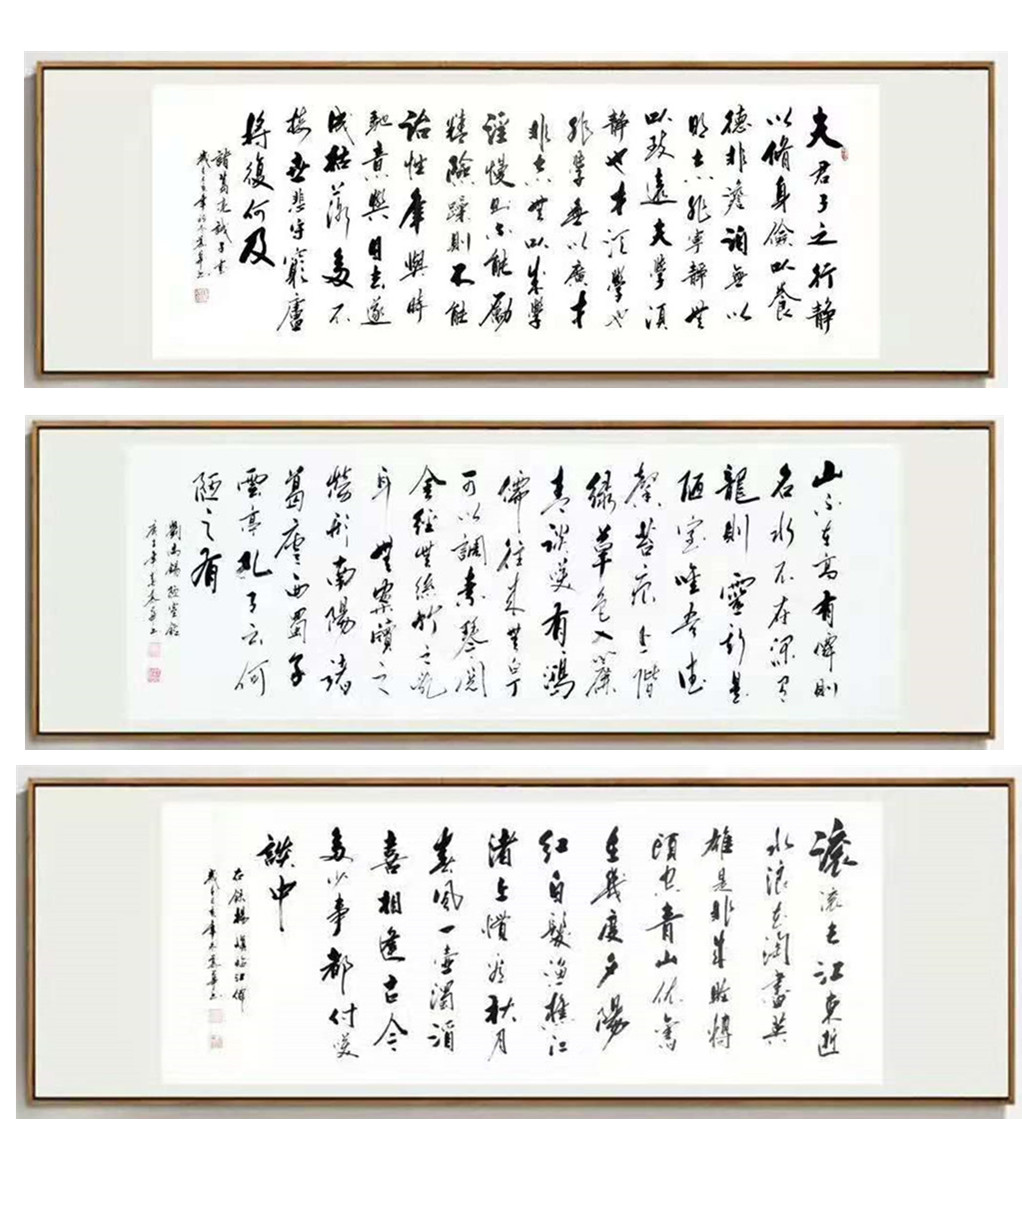 夫君子之行静
以脩身儉以養
德非澹泊無以
明志非寧静無
以致遠夫學須
静也才須學也
非學無以廣才
非志無以成學
淫慢則不能勵
精險躁則不能
治性年與時
馳意與日去遂
成枯落多不
接世悲守窮廬
将復何及
諸葛亮誡子書
山不在高有僊則
名水不在深有
龍則靈斯是
陋室唯吾德
馨苔痕上階
緑草色入簾
青談笑有鴻
儒往来無白丁
可以調素琴閲
金經無絲竹之亂
耳無案牘之
勞形南陽諸
葛廬西蜀子
雲亭孔子云何
陋之有
劉禹錫陋室銘
滚滚長江東逝
水浪花淘盡英
雄是非成敗轉
頭空青山依舊
在幾度夕陽
紅白髮漁樵江
渚上慣看秋月
春風一壺濁酒
喜相逢古今
多少事都付笑
談中
右錄楊慎臨江仙